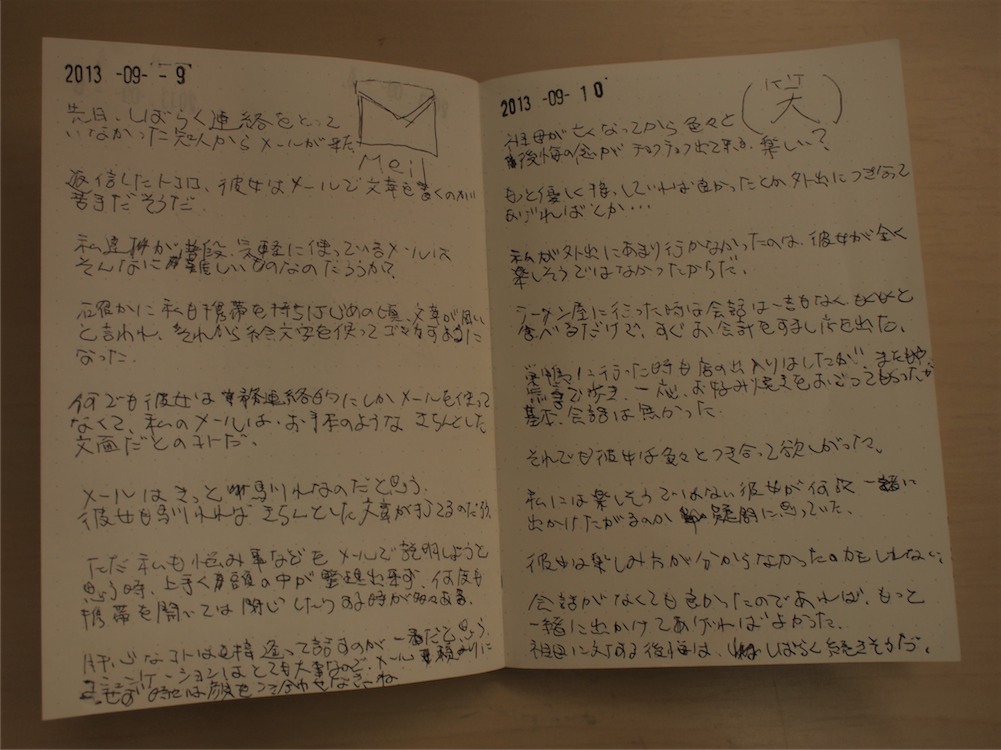 2013 -09- - 9
先日、しばらく連絡をとって
いなかった知人からメールが来た。
Meil
返信したトコロ、彼女はメールで文章を書くのが
苦手だそうだ.
私達が普段、気軽に使っているメールは
そんなに難しいものなのだろうか?
確かに私も携帯を持ちはじめの頃、文章が固い
と言われ、それから絵文字を使って
なった.
何でも彼女は事務連絡的にしかメールを使って
なくて、私のメールは、お手本のような きちんとした
文面だとのコトだ。
メールはきっと 馴れなのだと思う.
彼女も馴れれば きちんとした文章が
ただ 私も悩み事などを メールで説明しようと
思う時、上手く頭の中が整理出来ず、何度も
携帯を開いては閉じしたりする時が多々ある.
肝心なコトは直接逢って話すのが一番だと思う.
コミュニケーションはとても大事なので、メール
時には顔をつき合わせなきゃね
2013 -09- 1 0
祖母が亡くなってから 色々と
後悔の念が 出て来る. 楽しい?
もっと優しく接していれば良かったとか 外出につき合って
あげればとか・・・
私が外出にあまり行かなかったのは、彼女が全く
楽しそうではなかったからだ.
ラーメン屋に行った時は会話は一言もなく もくもくと
食べるだけで、すぐお会計をすまし店を出た。
巣鴨に行った時も店の出入りはしたが またもや
歩き、一応、お好み焼きをおごってもらったが
基本、会話は無かった.
それでも彼女は色々とつき合って欲しがった。
私には楽しそうではない彼女が何故 一緒に
出かけたがるのか 疑問に思っていた.
彼女は楽しみ方が分からなかったのかもしれない.
会話がなくても良かったのであれば、もっと
一緒に出かけてあげればよかった.
祖母に対する後悔は、しばらく続きそうだ.